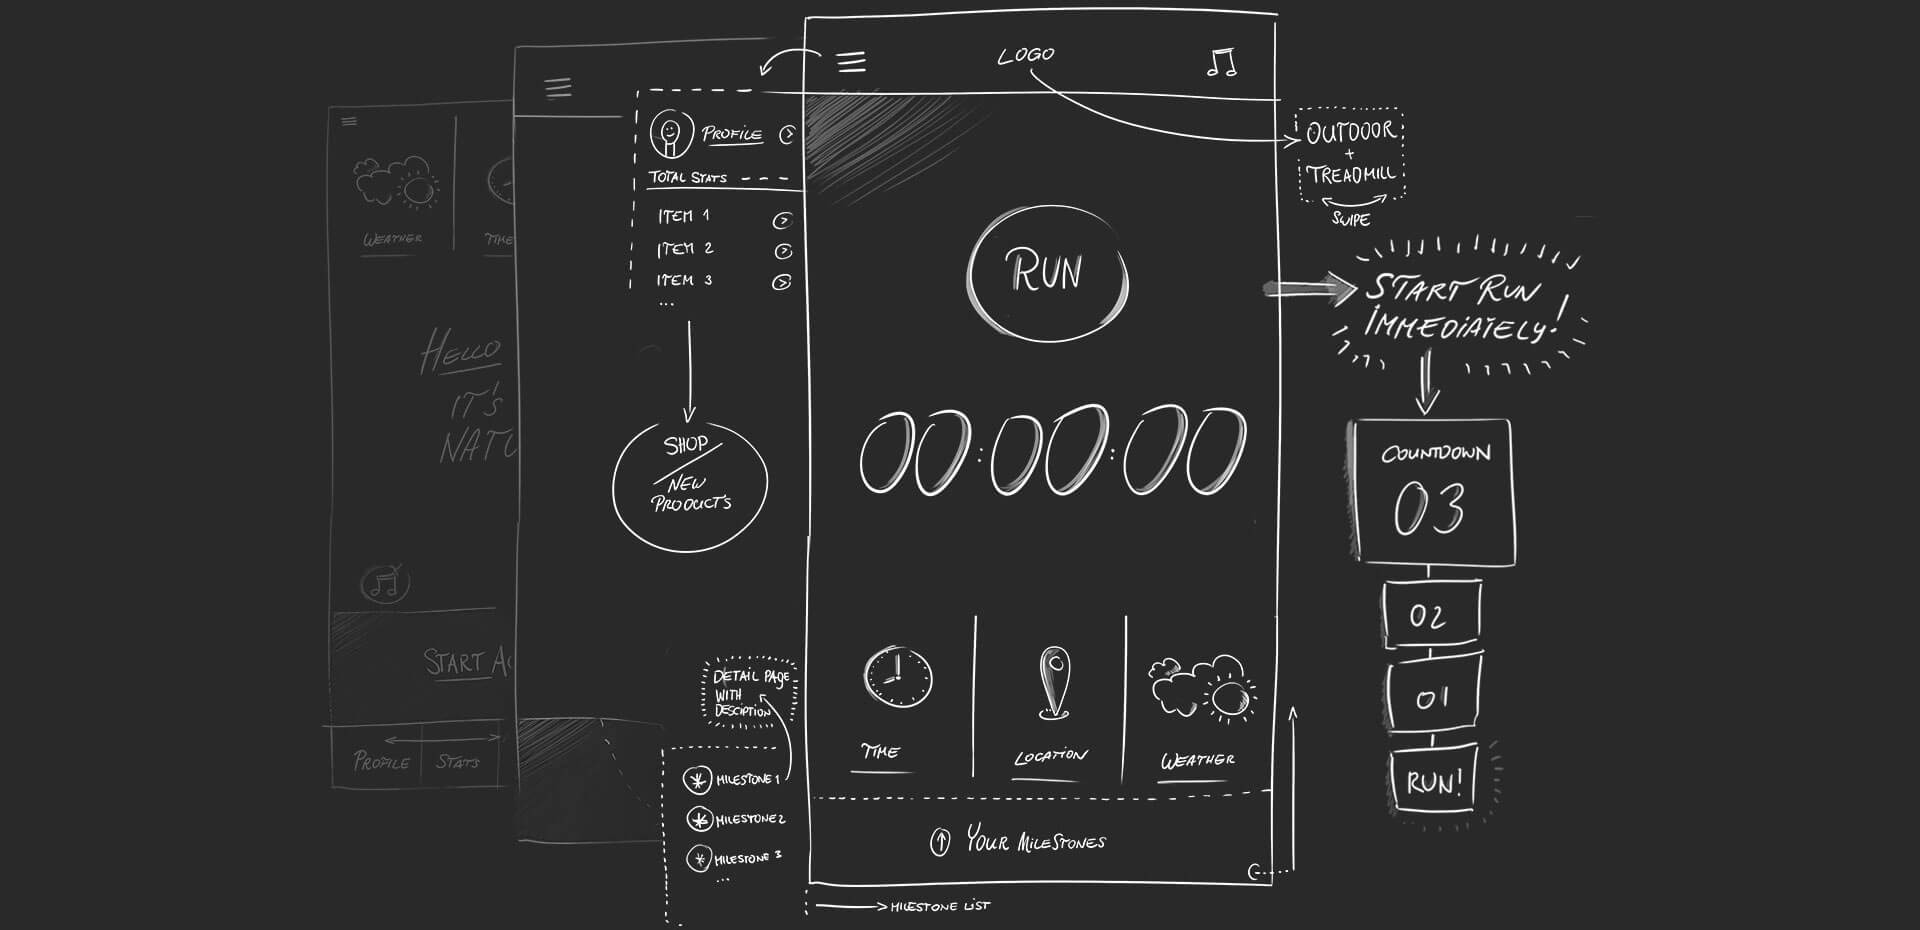 WEATHER
TIME
HELLO
IT'S
NATU
START AC
PROFILE
STATS
PROFILE
TOTAL STATS
ITEM 1
ITEM 2
ITEM 3
...
SHOP
NEW
PRODUCTS
DETAIL PAGE
WITH
DESCIPTION
MILESTONE 1
MILESTONE 2
MILESTONE 3
...
LOGO
RUN
00:00:00
TIME
LOCATION
WEATHER
YOUR MILESTONES
MILESTONE LIST
OUTDOOR
+
TREADMILL
SWIPE
START RUN
IMMEDIATELY!
COUNTDOWN
03
02
01
RUN!